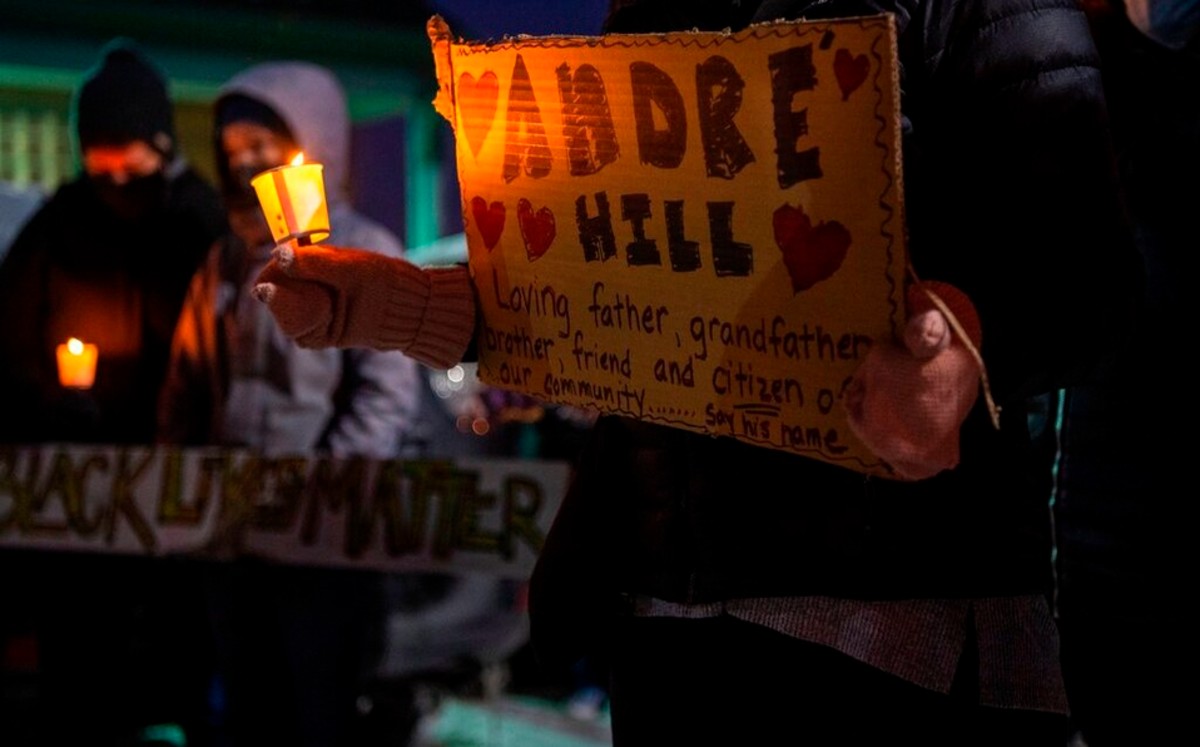 ANDRE'
HILL
Loving father, grandfather
brother, friend and citizen
our community.......
Say his name
BLACK LIVES MATTER